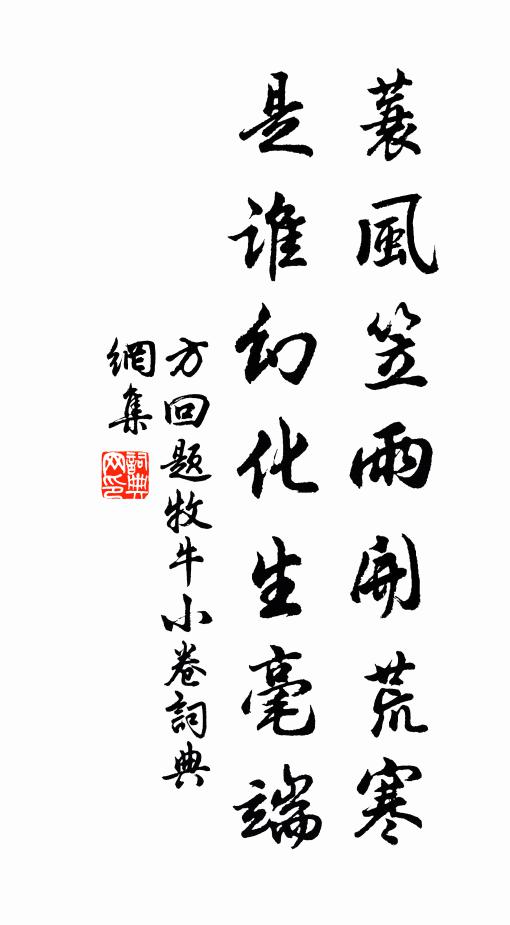 蓑風笠雨開荒寒
是誰幻化生毫端
方回題牧牛小卷詞典
網集
詞典網印